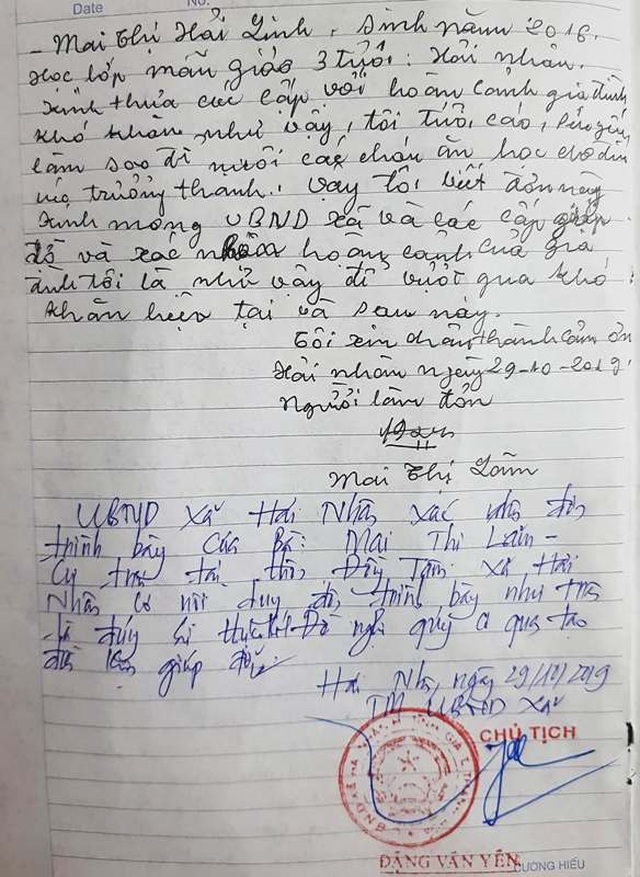 Date No:
- Mai Thị Hải Linh, sinh năm 2016.
Học lớp mẫu giáo 3 tuổi: Hải nhân.
Kính thưa các cấp với hoàn cảnh gia đình
khó khăn như vậy, tôi tuổi cao, sức yếu
làm sao để nuôi các cháu ăn học cho đến
trưởng thành. vậy tôi viết đơn này
kính mong UBND xã và các cấp giúp
đỡ và xác nhận hoàn cảnh của gia
đình tôi là như vậy để vượt qua khó
khăn hiện tại và sau này.
Tôi xin chân thành cảm ơn
Hải nhân ngày 29-10-2019.
Người làm đơn
Mai Thị Lâm
UBND xã Hải Nhân xác nhận đơn
trình bày của Bà: Mai Thị Lâm -
Cư trú tại thôn Đông Tâm xã Hải
Nhân có nội dung đơn trình bày như trên
là đúng sự thật. Đề nghị quý cơ quan tạo
điều kiện giúp đỡ.
Hải Nhân, ngày 29/10/2019
TM UBND xã
CHỦ TỊCH
ĐẶNG VĂN YÊN
CƯỜNG HIẾU